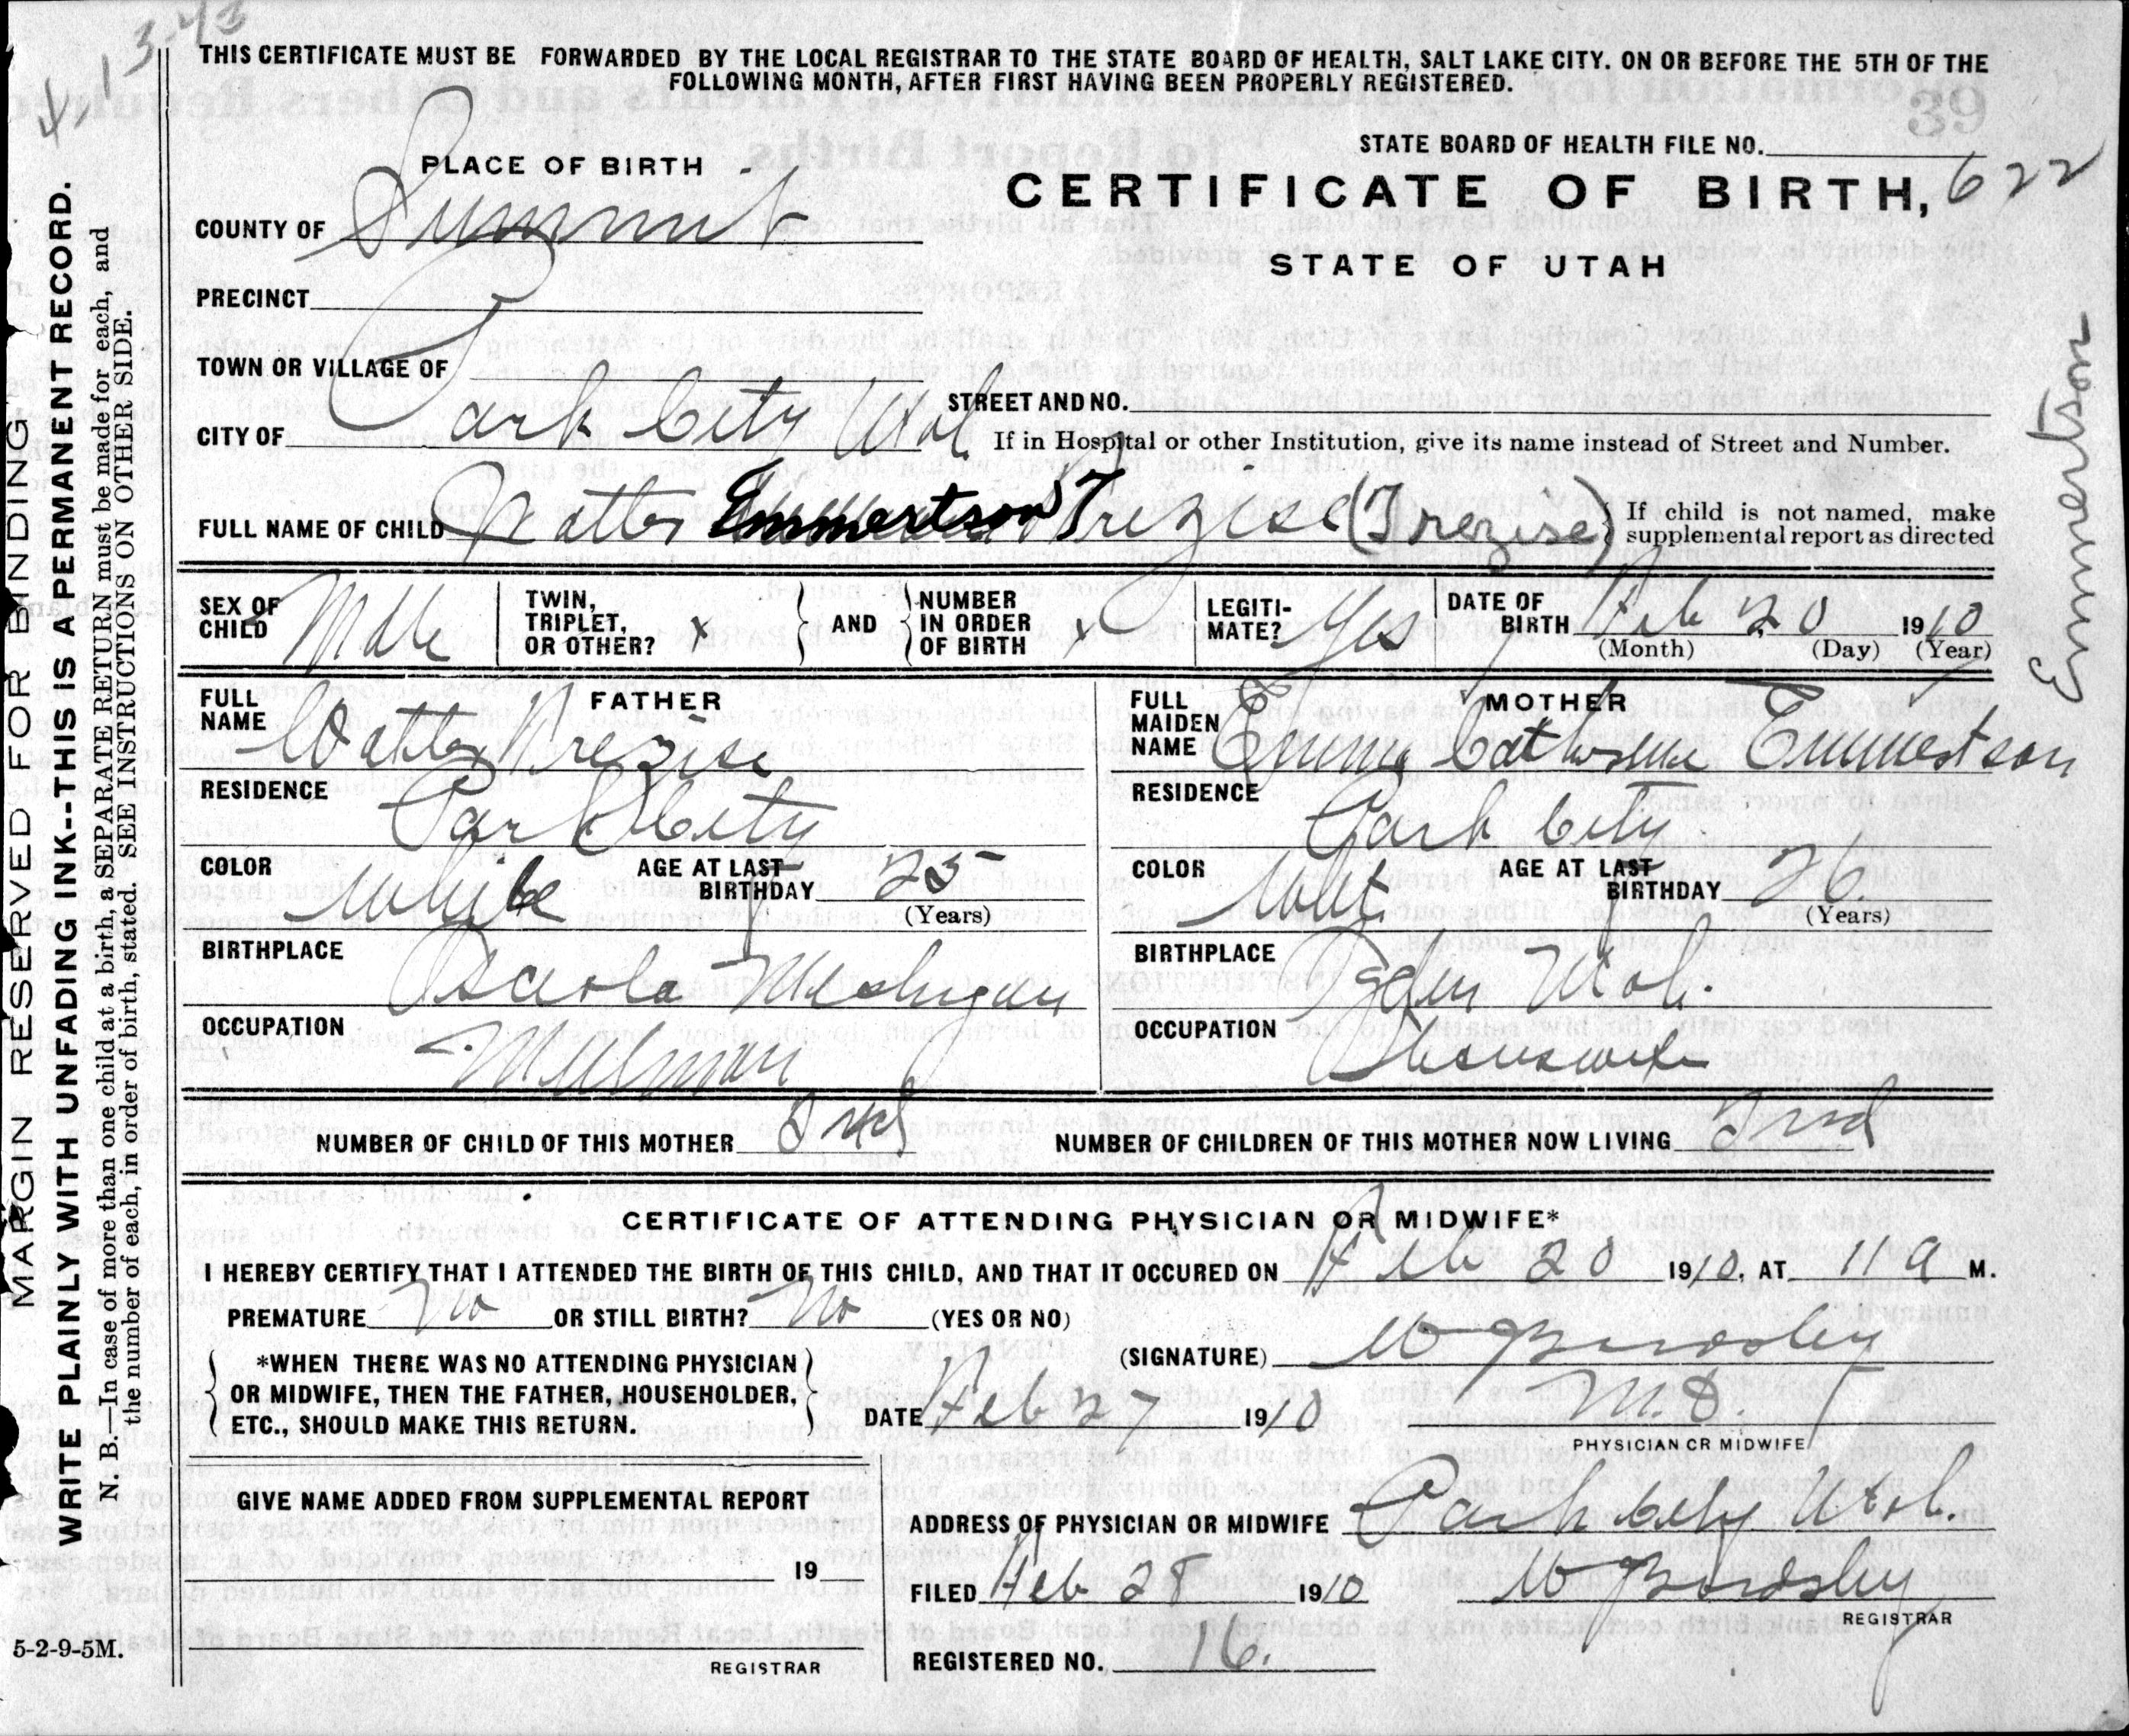 4, 13-43
THIS CERTIFICATE MUST BE FORWARDED BY THE LOCAL REGISTRAR TO THE STATE BOARD OF HEALTH, SALT LAKE CITY. ON OR BEFORE THE 5TH OF THE
FOLLOWING MONTH, AFTER FIRST HAVING BEEN PROPERLY REGISTERED.
39
STATE BOARD OF HEALTH FILE NO.
PLACE OF BIRTH
CERTIFICATE OF BIRTH, 622
COUNTY OF Summit
STATE OF UTAH
PRECINCT
TOWN OR VILLAGE OF
STREET AND NO.
CITY OF Park City Utah
If in Hospital or other Institution, give its name instead of Street and Number.
FULL NAME OF CHILD Walter Emmertson Trezise (Trezise)
If child is not named, make
supplemental report as directed
SEX OF CHILD Male
TWIN, TRIPLET, OR OTHER? x
AND
NUMBER IN ORDER OF BIRTH x
LEGITI-MATE? Yes
DATE OF BIRTH Feb 20 1910
(Month) (Day) (Year)
FATHER
FULL NAME Walter Trezise
RESIDENCE Park City
COLOR White
AGE AT LAST BIRTHDAY 25
(Years)
BIRTHPLACE Osceola Michigan
OCCUPATION Millman
MOTHER
FULL MAIDEN NAME Emma Catherine Emmertson
RESIDENCE Park City
COLOR Whit
AGE AT LAST BIRTHDAY 26
(Years)
BIRTHPLACE Ogden Utah.
OCCUPATION Housewife
NUMBER OF CHILD OF THIS MOTHER 2nd
NUMBER OF CHILDREN OF THIS MOTHER NOW LIVING 2nd
CERTIFICATE OF ATTENDING PHYSICIAN OR MIDWIFE*
I HEREBY CERTIFY THAT I ATTENDED THE BIRTH OF THIS CHILD, AND THAT IT OCCURED ON Feb 20 1910, AT 11 a M.
PREMATURE No OR STILL BIRTH? No (YES OR NO)
(SIGNATURE) W Bardsley
*WHEN THERE WAS NO ATTENDING PHYSICIAN
OR MIDWIFE, THEN THE FATHER, HOUSEHOLDER,
ETC., SHOULD MAKE THIS RETURN.
DATE Feb 27 1910
M.D.
PHYSICIAN OR MIDWIFE
GIVE NAME ADDED FROM SUPPLEMENTAL REPORT
ADDRESS OF PHYSICIAN OR MIDWIFE Park City Utah.
19
FILED Feb 28 1910 W Bardsley
REGISTRAR
REGISTERED NO. 16.
REGISTRAR
5-2-9-5M.
MARGIN RESERVED FOR BINDING
WRITE PLAINLY WITH UNFADING INK--THIS IS A PERMANENT RECORD.
N. B.—In case of more than one child at a birth, a SEPARATE RETURN must be made for each, and
the number of each, in order of birth, stated. SEE INSTRUCTIONS ON OTHER SIDE.
Emmertson